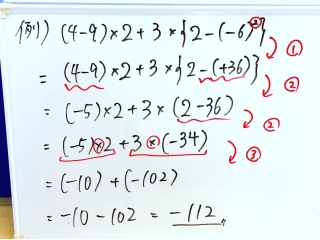 例) (4-9)×2+3×{2-(-6)²} ①
= (4-9)×2+3×{2-(+36)} ②
= (-5)×2+3×(2-36) ②
= (-5)×2+3×(-34) ③
= (-10)+(-102)
= -10-102 = -112